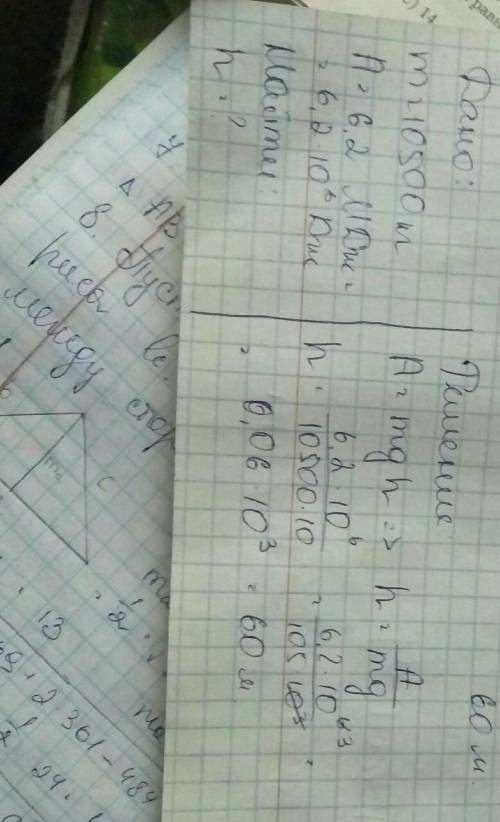 60 м.
Дано:
m = 10500 т
A = 6,2 МДж =
= 6,2·10⁶ Дж
Найти:
h = ?
Решение:
A = mgh => h = A/mg
h = 6,2·10⁶/10500·10 = 6,2·10⁶³/105·10³ =
= 0,06·10³ = 60 м.
) 14
Δ AB
8. Пус
между стор
c
13
2·361-484
24